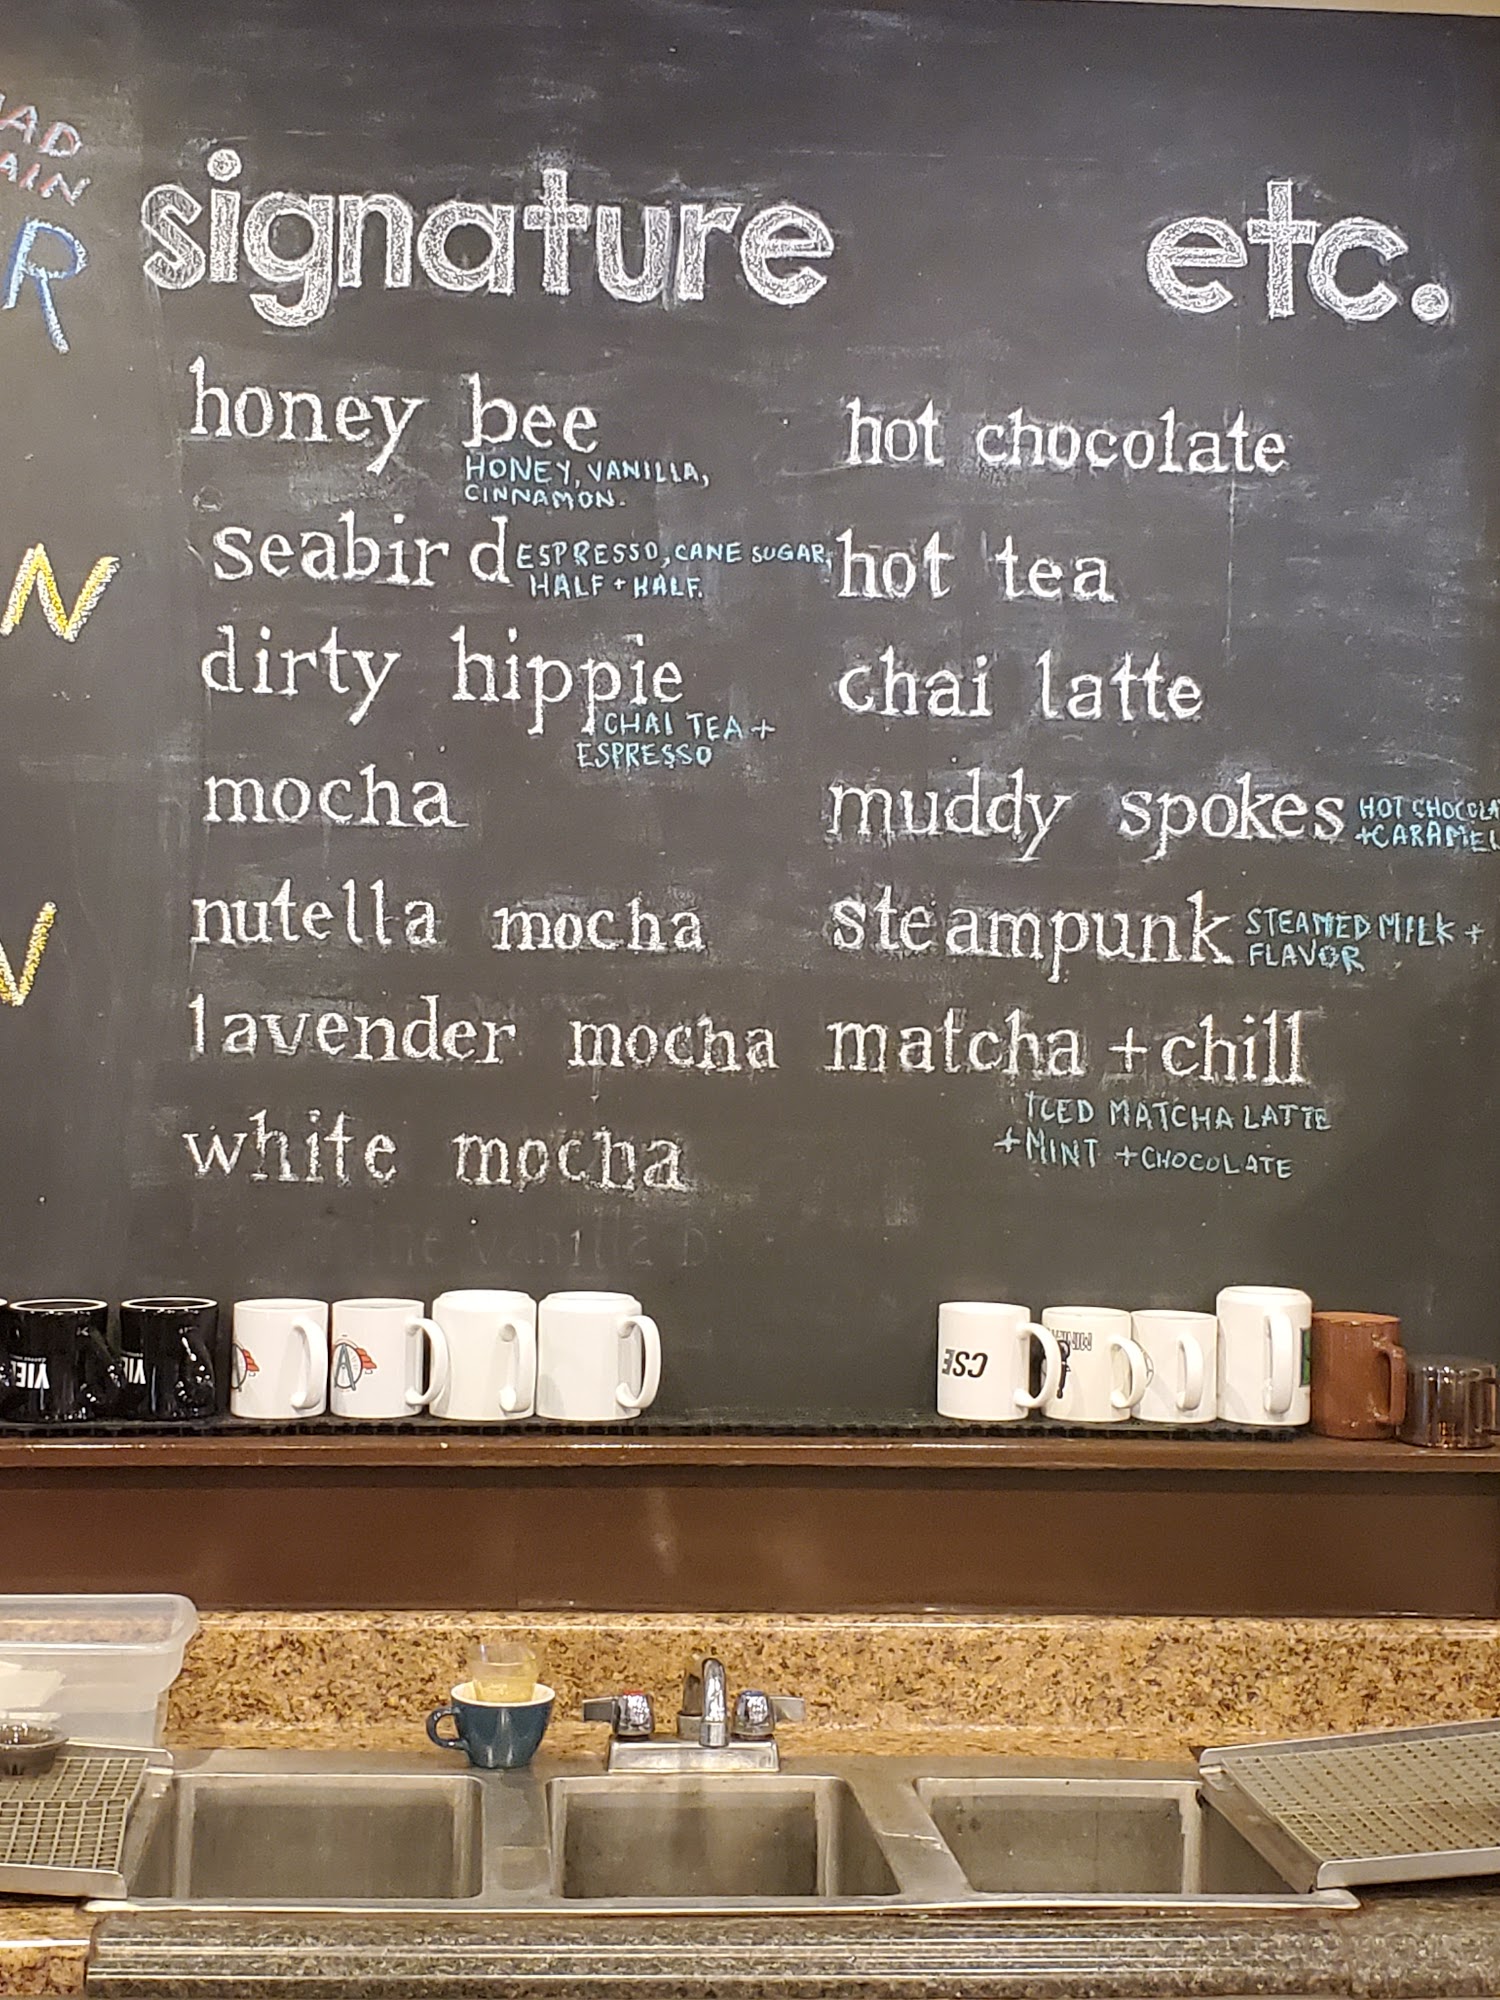 signature
honey bee
HONEY, VANILLA,
CINNAMON.
seabird
ESPRESSO, CANE SUGAR,
HALF + HALF.
dirty hippie
CHAI TEA +
ESPRESSO
mocha
nutella mocha
lavender mocha
white mocha
etc.
hot chocolate
hot tea
chai latte
muddy spokes
HOT CHOCOLA
+CARAMEL
steampunk
STEAMED MILK +
FLAVOR
matcha + chill
ICED MATCHA LATTE
+MINT +CHOCOLATE
CSE